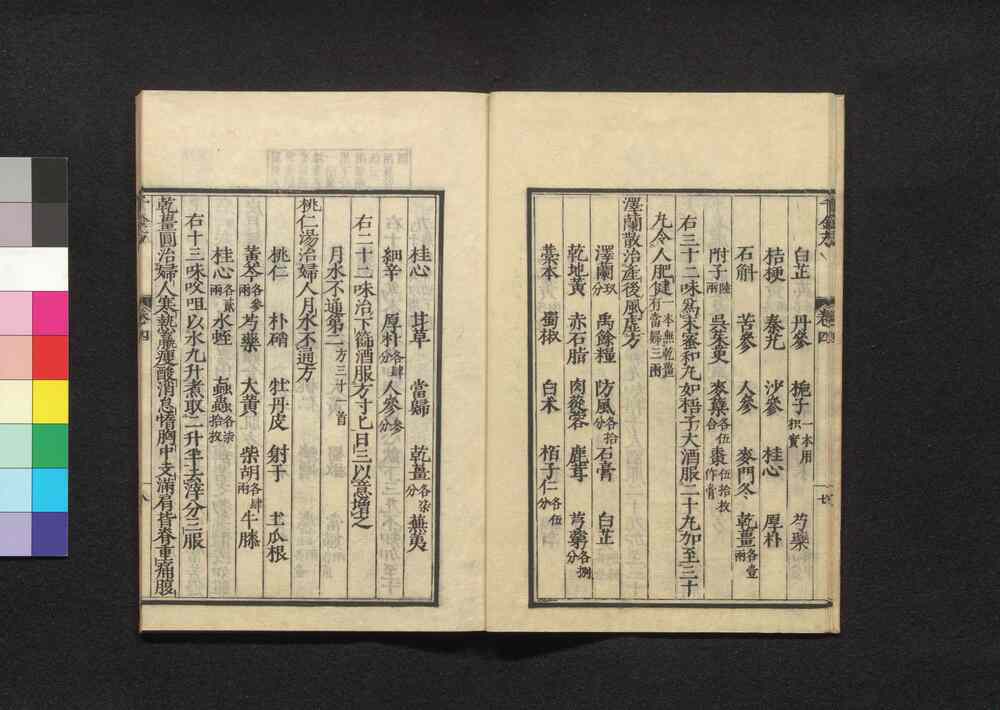 白芷 丹參 梔子一本用枳實 芍藥
桔梗 秦艽 沙參 桂心 厚朴
石斛 苦參 人參 麥門冬 乾薑各壹兩
附子陸兩 吳茱萸 麥蘖各伍合 棗伍拾枚作膏
右三十二味爲末蜜和丸如梧子大酒服二十丸加至三十
丸令人肥健一本無乾薑有當歸三兩
澤蘭散治產後風虛方
澤蘭玖分 禹餘糧 防風各拾分 石膏 白芷
乾地黃 赤石脂 肉蓯蓉 鹿茸 芎藭各捌分
藁本 蜀椒 白朮 柏子仁各伍分
桂心 甘草 當歸 乾薑各柒分 蕪荑
細辛 厚朴各肆分 人參參分
右二十二味治下篩酒服方寸匕日三以意增之
月水不通第二方三十一首
桃仁湯治婦人月水不通方
桃仁 朴硝 牡丹皮 射干 土瓜根
黃芩各參兩 芍藥 大黃 柴胡各肆兩 牛膝
桂心各貳兩 水蛭 蝱蟲各柒拾枚
右十三味㕮咀以水九升煮取二升半去滓分三服
乾薑圓治婦人寒熱羸瘦酸消怠惰胸中支滿肩背脊重痛腹